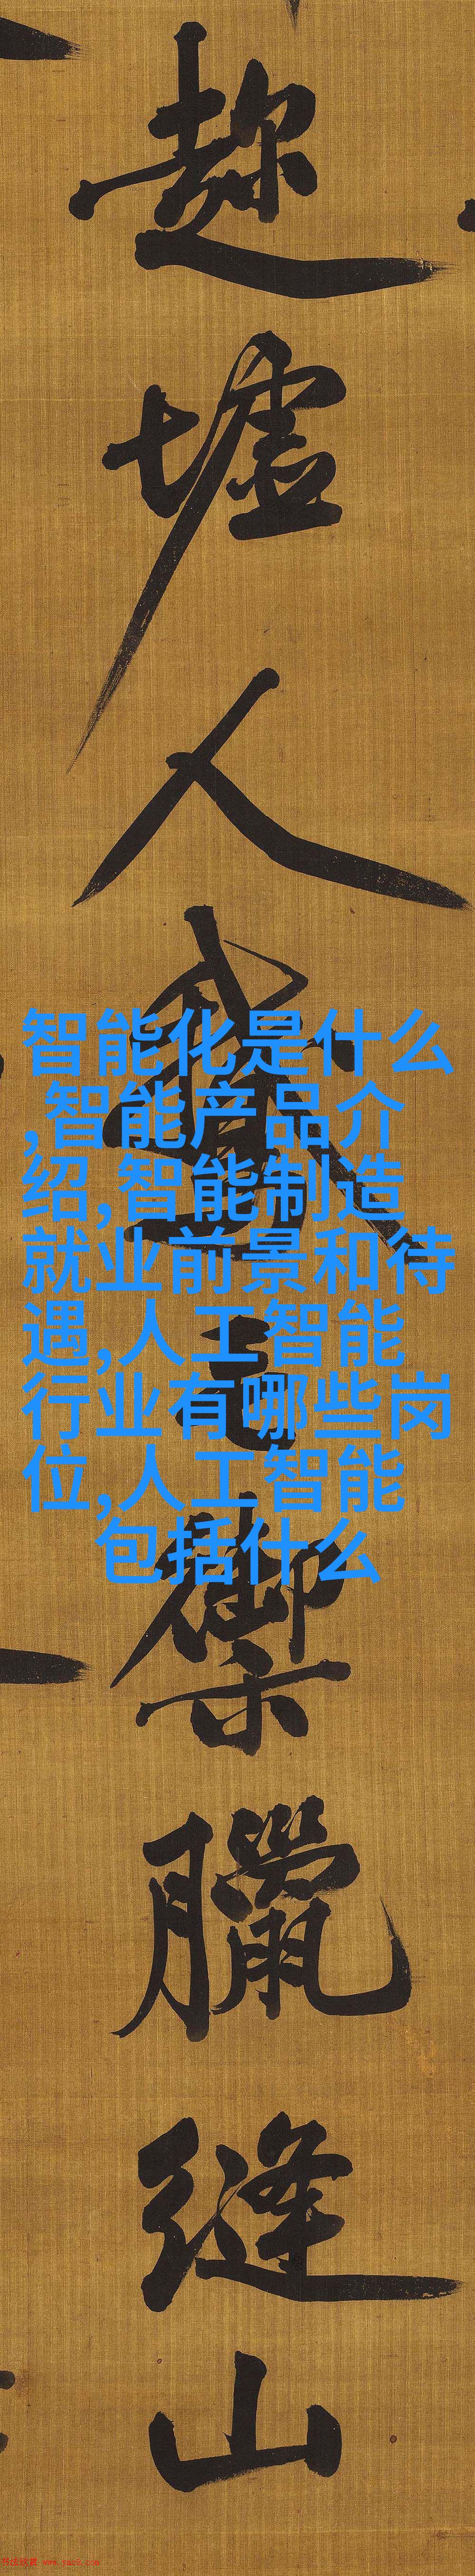 趂墟人集包禦臘縫山
智能化是什么
,智能产品介
绍,智能制造
就业前景和待
遇,人工智能
行业有哪些岗
位,人工智能
包括什么